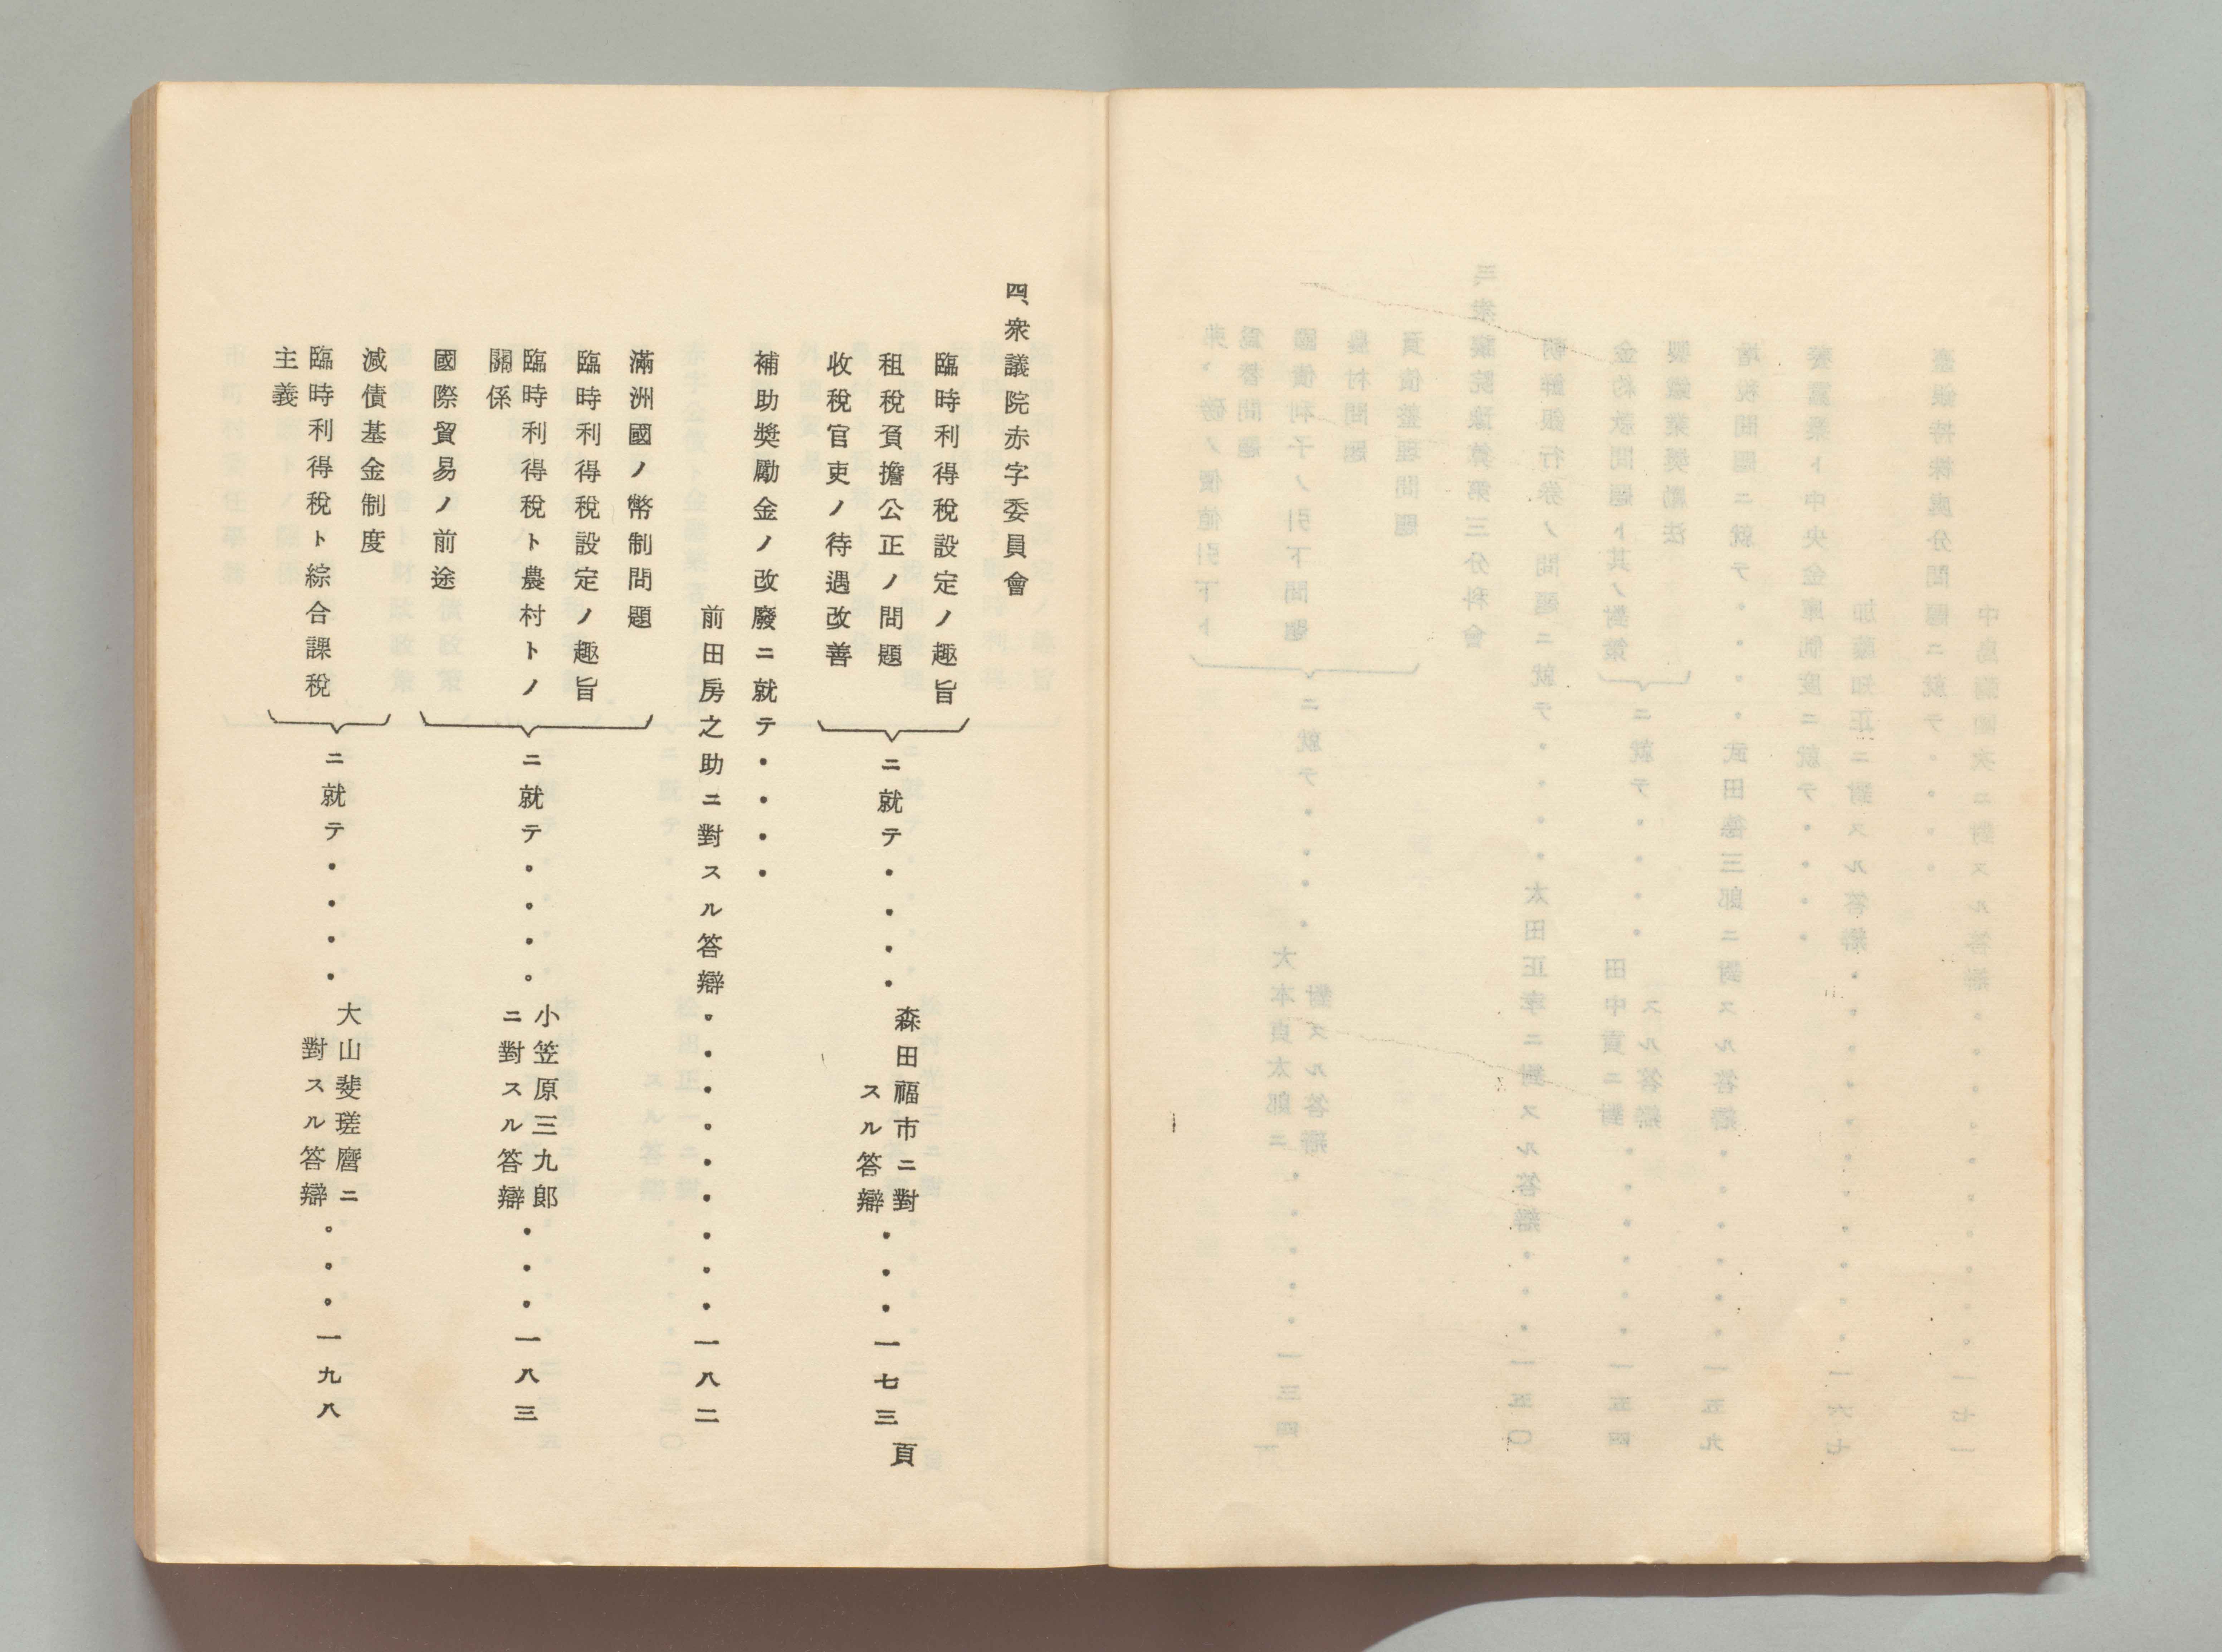 四、衆議院赤字委員會
臨時利得稅設定ノ趣旨
租稅負擔公正ノ問題
收稅官吏ノ待遇改善
ニ就テ・・・・
森田福市ニ對
スル答辯
・・・一七三頁
補助奬勵金ノ改廢ニ就テ・・・・
前田房之助ニ對スル答辯・・・・・・・・・一八二
滿洲國ノ幣制問題
臨時利得稅設定ノ趣旨
臨時利得稅ト農村トノ
關係
國際貿易ノ前途
ニ就テ・・・・
小笠原三九郞
ニ對スル答辯
・・・一八三
減債基金制度
臨時利得稅ト綜合課稅
主義
ニ就テ・・・・
大山斐瑳麿ニ
對スル答辯
・・・一九八